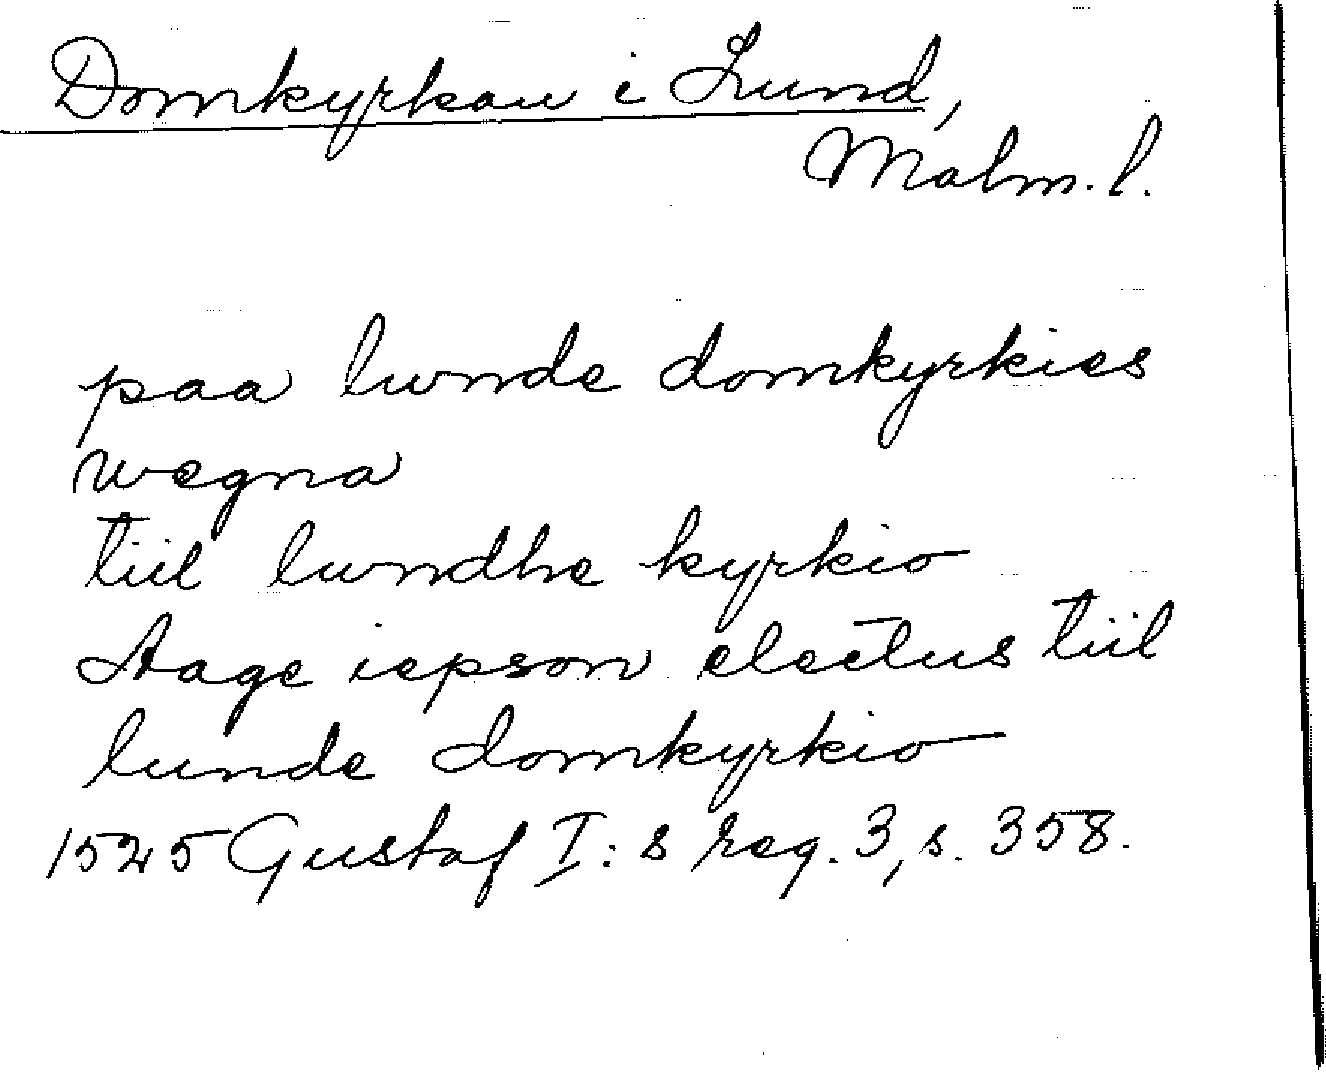 Domkyrkan i Lund,
Malm. l.
paa lwnde domkyrkies
wegna
tiil lwndhe kyrkio
Aage iepson electus tiil
lunde domkyrkio
1525 Gustaf I:s reg. 3, s. 358.